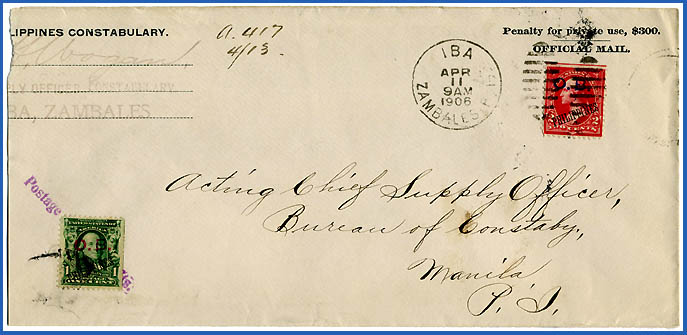 LIPPINES CONSTABULARY.
PLY OFFICER CONSTABULARY
IBA, ZAMBALES
A. 417
4/13
IBA
APR
11
9AM
1906
ZAMBALES P.I.
Penalty for private use, $300.
OFFICIAL MAIL.
O.B.
PHILIPPINES
2
Acting Chief Supply Officer,
Bureau of Constaby,
Manila
P. I.
Postage
O.B.
1